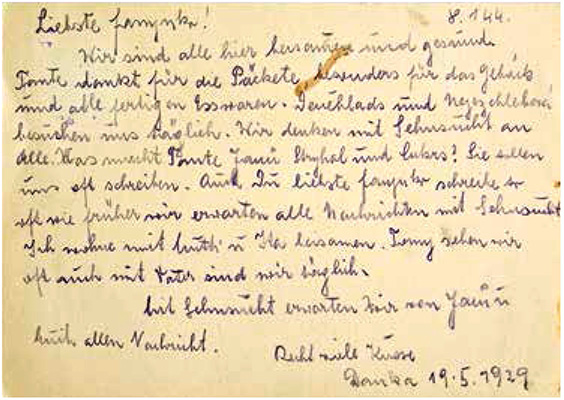 Liebste Jarynko! 8.1.44.
Wir sind alle hier beisamen und gesund.
Tante dankt für die Päckete, besonders für das Gebäck
und alle fertigen Esswaren. und
besuchen uns täglich. Wir denken mit Sehnsucht an
alle. Was macht Tante Stryhal und ? Sie sollen
uns oft schreiben. Auch Du liebste Jarynko schreibe so
oft wie früher wir erwarten alle Nachrichten mit Sehnsucht
Ich wohne mit Mutti u Ita beisamen. Tomy sehen wir
oft auch mit Vater sind wir täglich.
Mit Sehnsucht erwarten wir von u
Euch allen Nachricht.
Recht viele Küsse
Danka 19.5.1929